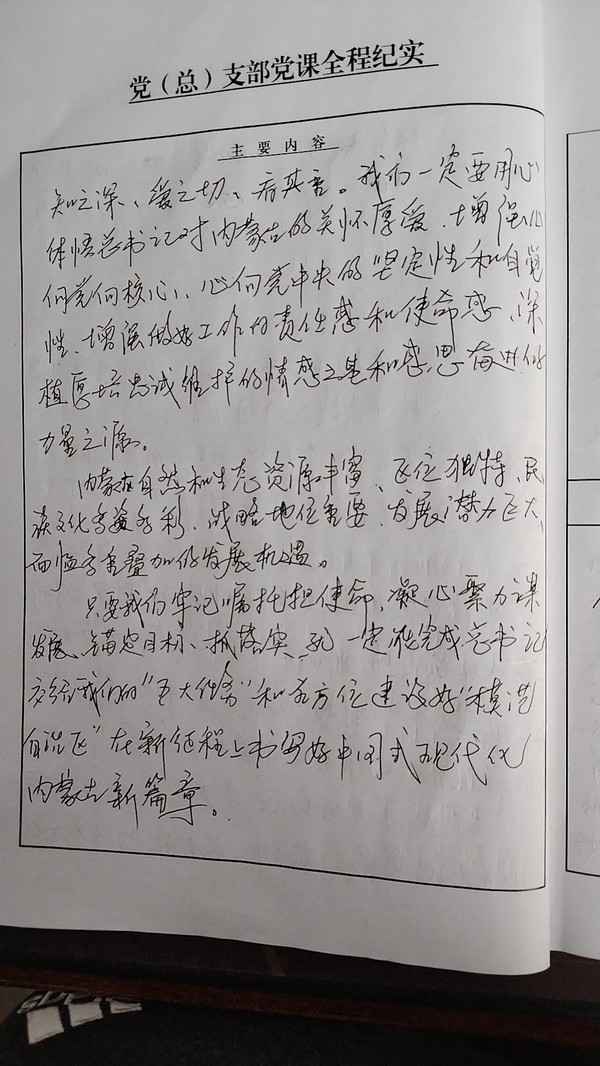 党（总）支部党课全程纪实
主要内容
知之深、爱之切、有其重。我们一定要用心
体悟总书记对内蒙古的关怀厚爱、增强心
向党向核心、心向党中央的坚定性和自觉
性、增强做好工作的责任感和使命感、深
植厚培忠诚维护的情感之基和感恩奋进的
力量之源。
内蒙古自然和生态资源丰富、区位独特、民
族文化多姿多彩、战略地位重要、发展潜力巨大、
面临多重叠加的发展机遇。
只要我们牢记嘱托担使命，凝心聚力谋
发展、锚定目标、抓落实、就一定能完成总书记
交给我们的“五大任务”和全方位建设好“模范
自治区”在新征程上书写好中国式现代化
内蒙古新篇章。